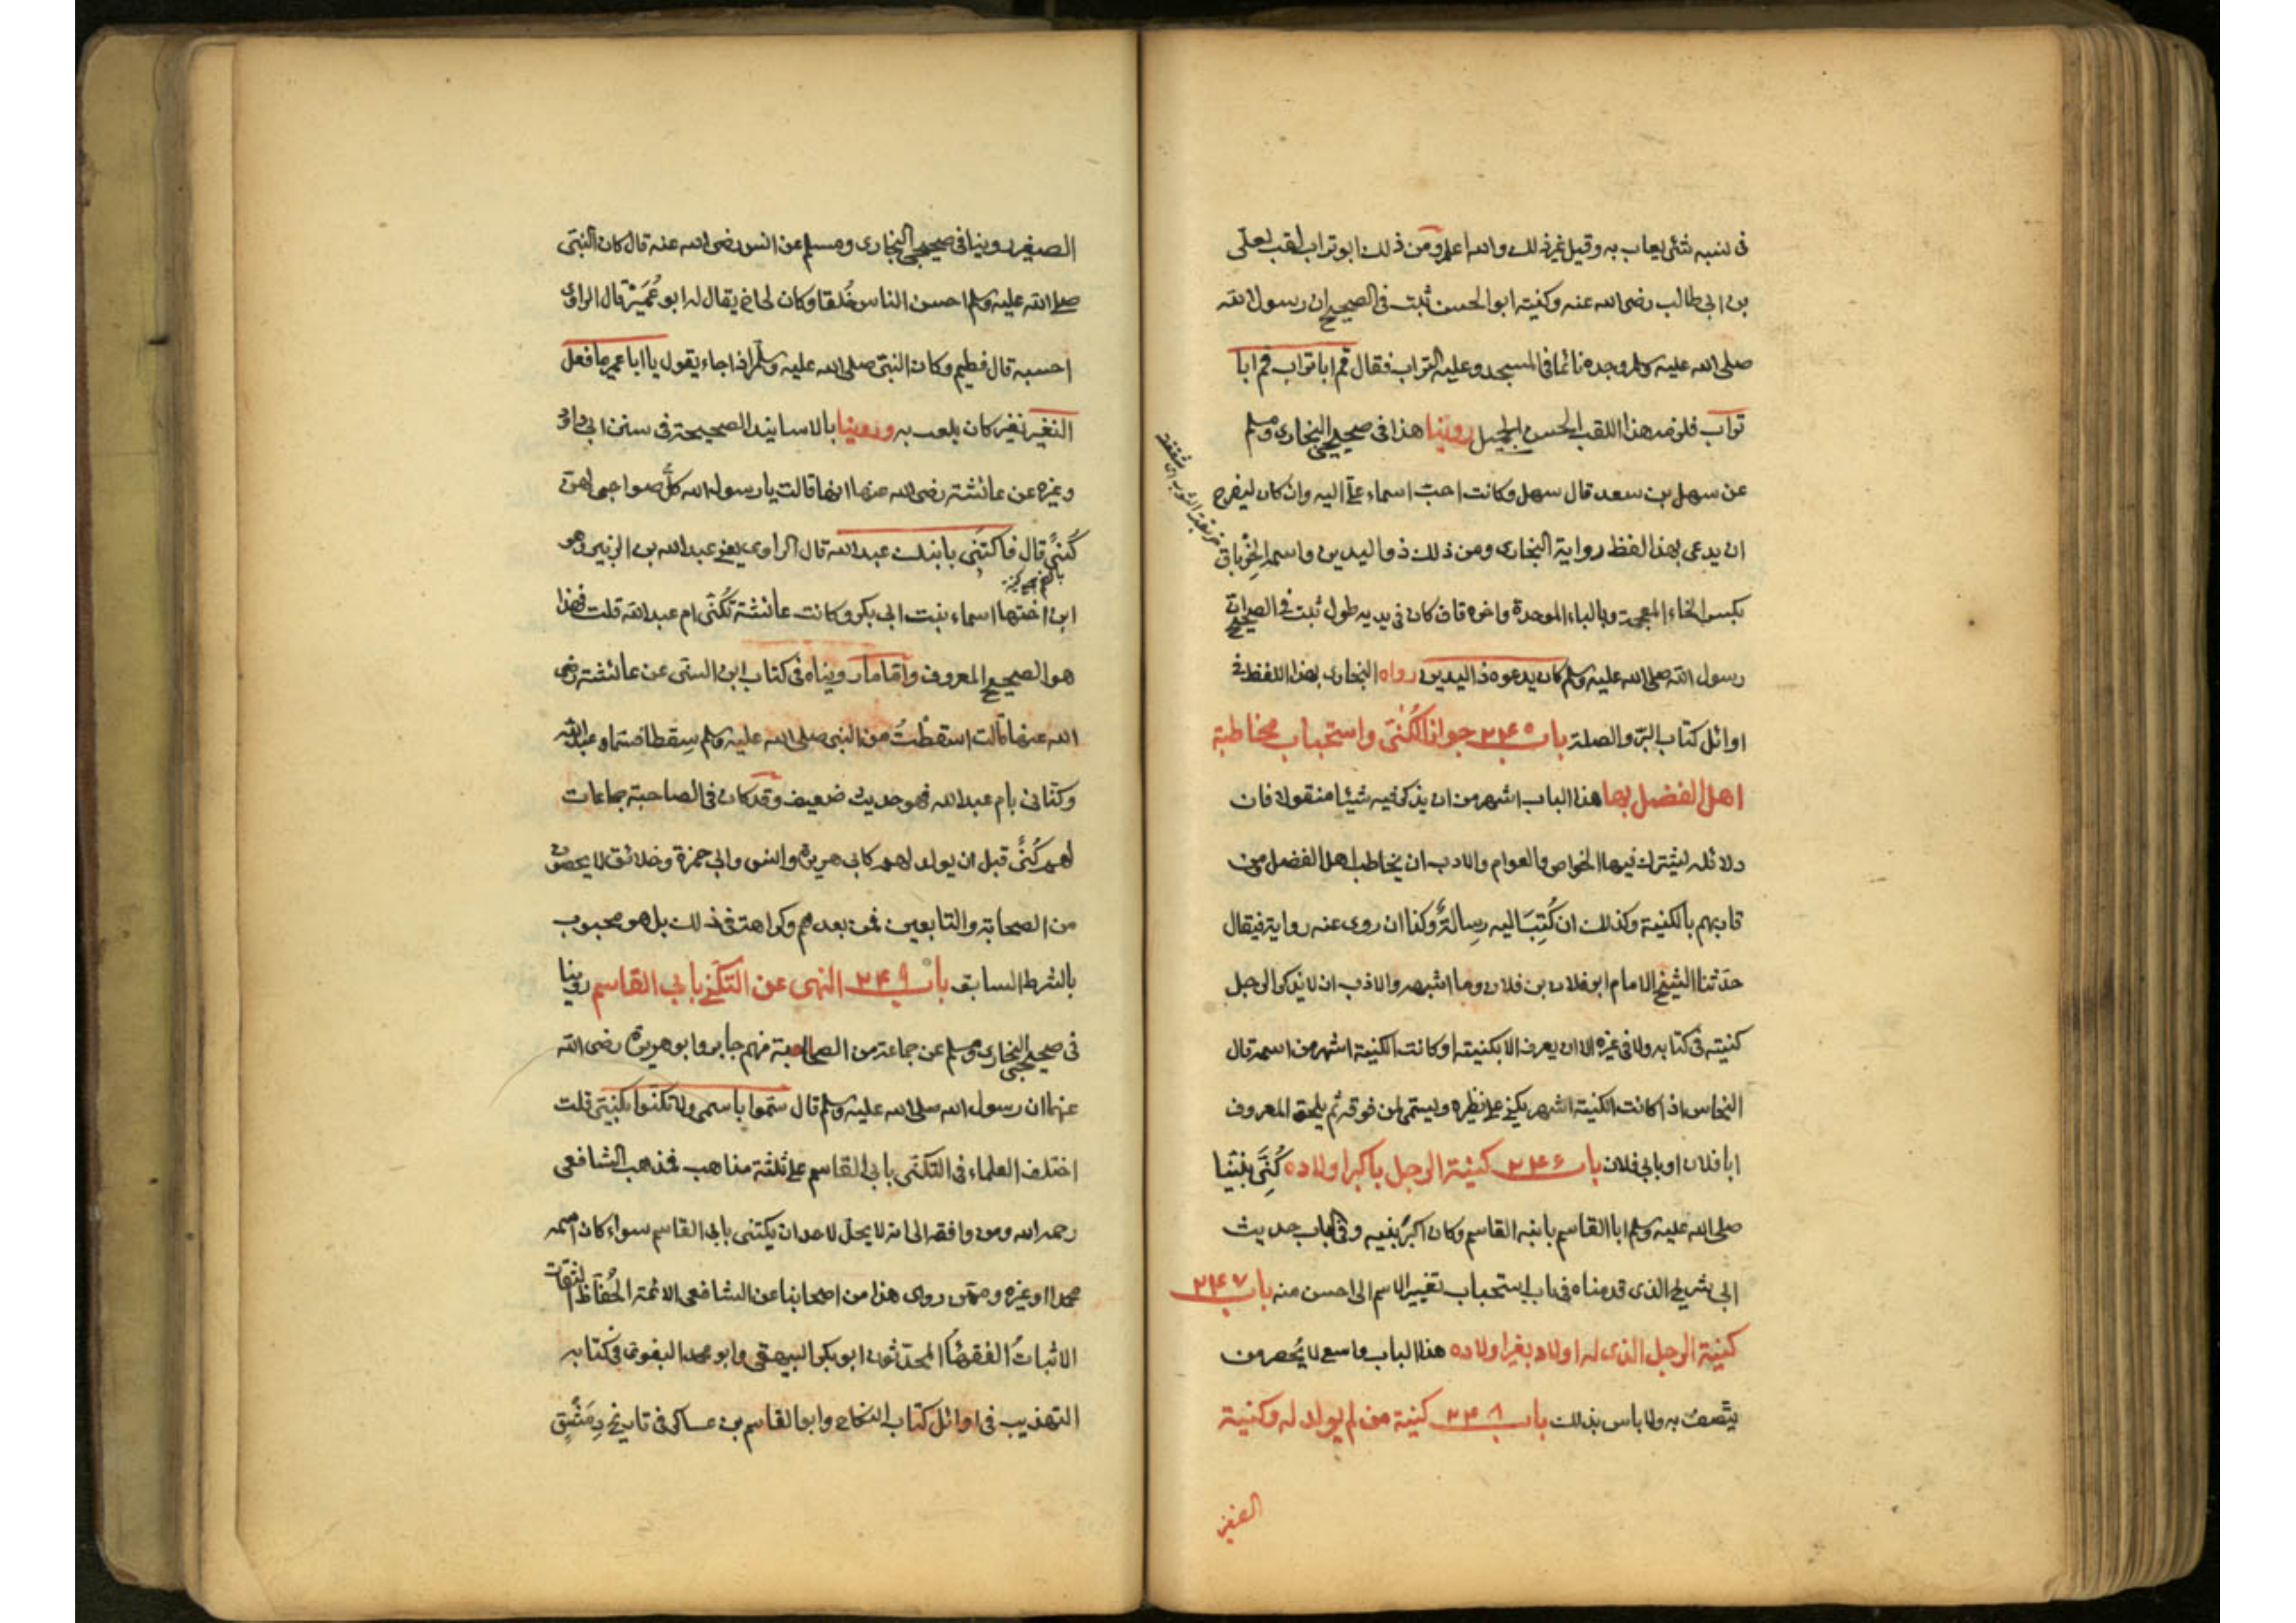 فى نسبه شئ يعاب به وقيل غير ذلك والله اعلم ومن ذلك ابو تراب لقب لعلى
بن ابى طالب رضى الله عنه وكنيته ابو الحسن ثبت فى الصحيح ان رسول الله
صلى الله عليه وسلم وجده نائما فى المسجد وعليه التراب فقال قم ابا تراب قم ابا
تراب فلزمه هذا اللقب الحسن الجميل روينا هذا فى صحيحى البخارى ومسلم
عن سهل بن سعد قال سهل وكانت احبّ اسماء علىّ اليه وان كان ليفرح
ان يدعى بهذا لفظ رواية البخارى ومن ذلك ذو اليدين واسمه الخِرْباق
بكسر الخاء المعجمة وبالباء الموحدة واخره قاف كان فى يديه طول ثبت فى الصحيح ان
رسول الله صلى الله عليه وسلم كان يدعوه ذا اليدين رواه البخارى بهذا اللفظ فى
اوائل كتاب البرّ والصلة باب ٢٤٥ جواز الكُنَى واستحباب مخاطبة
اهل الفضل بها هذا الباب اشهر من ان يذكر فيه شيئا منقولا فان
دلائله يشترك فيها الخواص والعوام والادب ان يخاطب اهل الفضل من
قاربهم بالكنية وكذلك ان كُتِبَ اليه رسالةٌ وكذا ان روى عنه رواية فيقال
حدّثنا الشيخ الامام ابو فلان بن فلان وما اشبهه والادب ان لا يذكر الرجل
كنيته فى كتابه ولا فى غيره الا ان يعرف الا بكنيته او كانت الكنية اشهر من اسمه قال
النحاس اذا كانت الكنية اشهر يكنى على نظيره ويسمّى لمن فوقه ثم يلحق المعروف
ابا فلان او بابى فلان باب ٢٤٦ كنية الرجل باكبر اولاده كُنِّىَ نبيّنا
صلى الله عليه وسلم ابا القاسم بابنه القاسم وكان اكبرُ بنيه وفى الباب حديث
ابى شريح الذى قدمناه فى باب استحباب تغيير الاسم الى احسن منه باب ٢٤٧
كنية الرجل الذى له اولاد بغير اولاده هذا الباب واسع لا يُحصر من
يتّصف به ولا باس بذلك باب ٢٤٨ كنية من لم يولد له وكنية
الصغير
الصغير روينا فى صحيحى البخارى ومسلم عن انس رضى الله عنه قال كان النبّى
صلى الله عليه وسلم احسن الناس خُلقا وكان لى اخ يقال له ابو عُمَيْر قال الراوى
احسبه قال فطيم وكان النبىّ صلى الله عليه وسلّم اذا جاء يقول يا ابا عمير ما فعل
النغير نغير كان يلعب به وروينا بالاسانيد الصحيحة فى سنن ابى داود
وغيره عن عائشة رضى الله عنها انها قالت يا رسول الله كلُّ صواحبى لهنّ
كُنىً قال فاكتنى بابنك عبد الله قال الراوى يعنى عبد الله بن الزبير وهو
ابن اختها اسماء بنت ابى بكر وكانت عائشة تُكنّى ام عبد الله قلت فهذا
هو الصحيح المعروف وامّا ما رويناه فى كتاب ابن السنى عن عائشة رضى
الله عنها قالت اسقطْتُ من النبى صلى الله عليه وسلم سِقطا فسماه عبد الله
وكنانى بام عبد الله فهو حديث ضعيف وقد كان فى الصاحبة جماعات
لهم كُنًى قبل ان يولد لهم كابى هريرة وانس وابى حمزة وخلائق لا يحصون
من الصحابة والتابعين فمن بعدهم وكراهة فى ذلك بل هو محبوب
بالشرط السابق باب ٢٤٩ النهى عن التكّنى بابى القاسم روينا
فى صحيحى البخارى ومسلم عن جماعة من الصحابة منهم جابر وابو هريرة رضى الله
عنهما ان رسول الله صلى الله عليه وسلم قال سمّوا باسمى ولا تكنّوا بكنيتى قلت
اختلف العلماء فى التكنّى بابى القاسم على ثلثة مذاهب فمذهب الشافعى
رحمه الله ومن وافقه الى انه لا يحلّ لاحد ان يكتنى بابى القاسم سواء كان اسمه
محمدا او غيره وممّن روى هذا من اصحابنا عن الشافعى الائمة الحُفّاظ الثقات
الاثباتُ الفقهاءُ المحدّثون ابو بكر البيهقى وابو محمد البغوى فى كتابه
التهذيب فى اوائل كتاب النكاح وابو القاسم بن عساكر فى تاريخ دِمَشْق